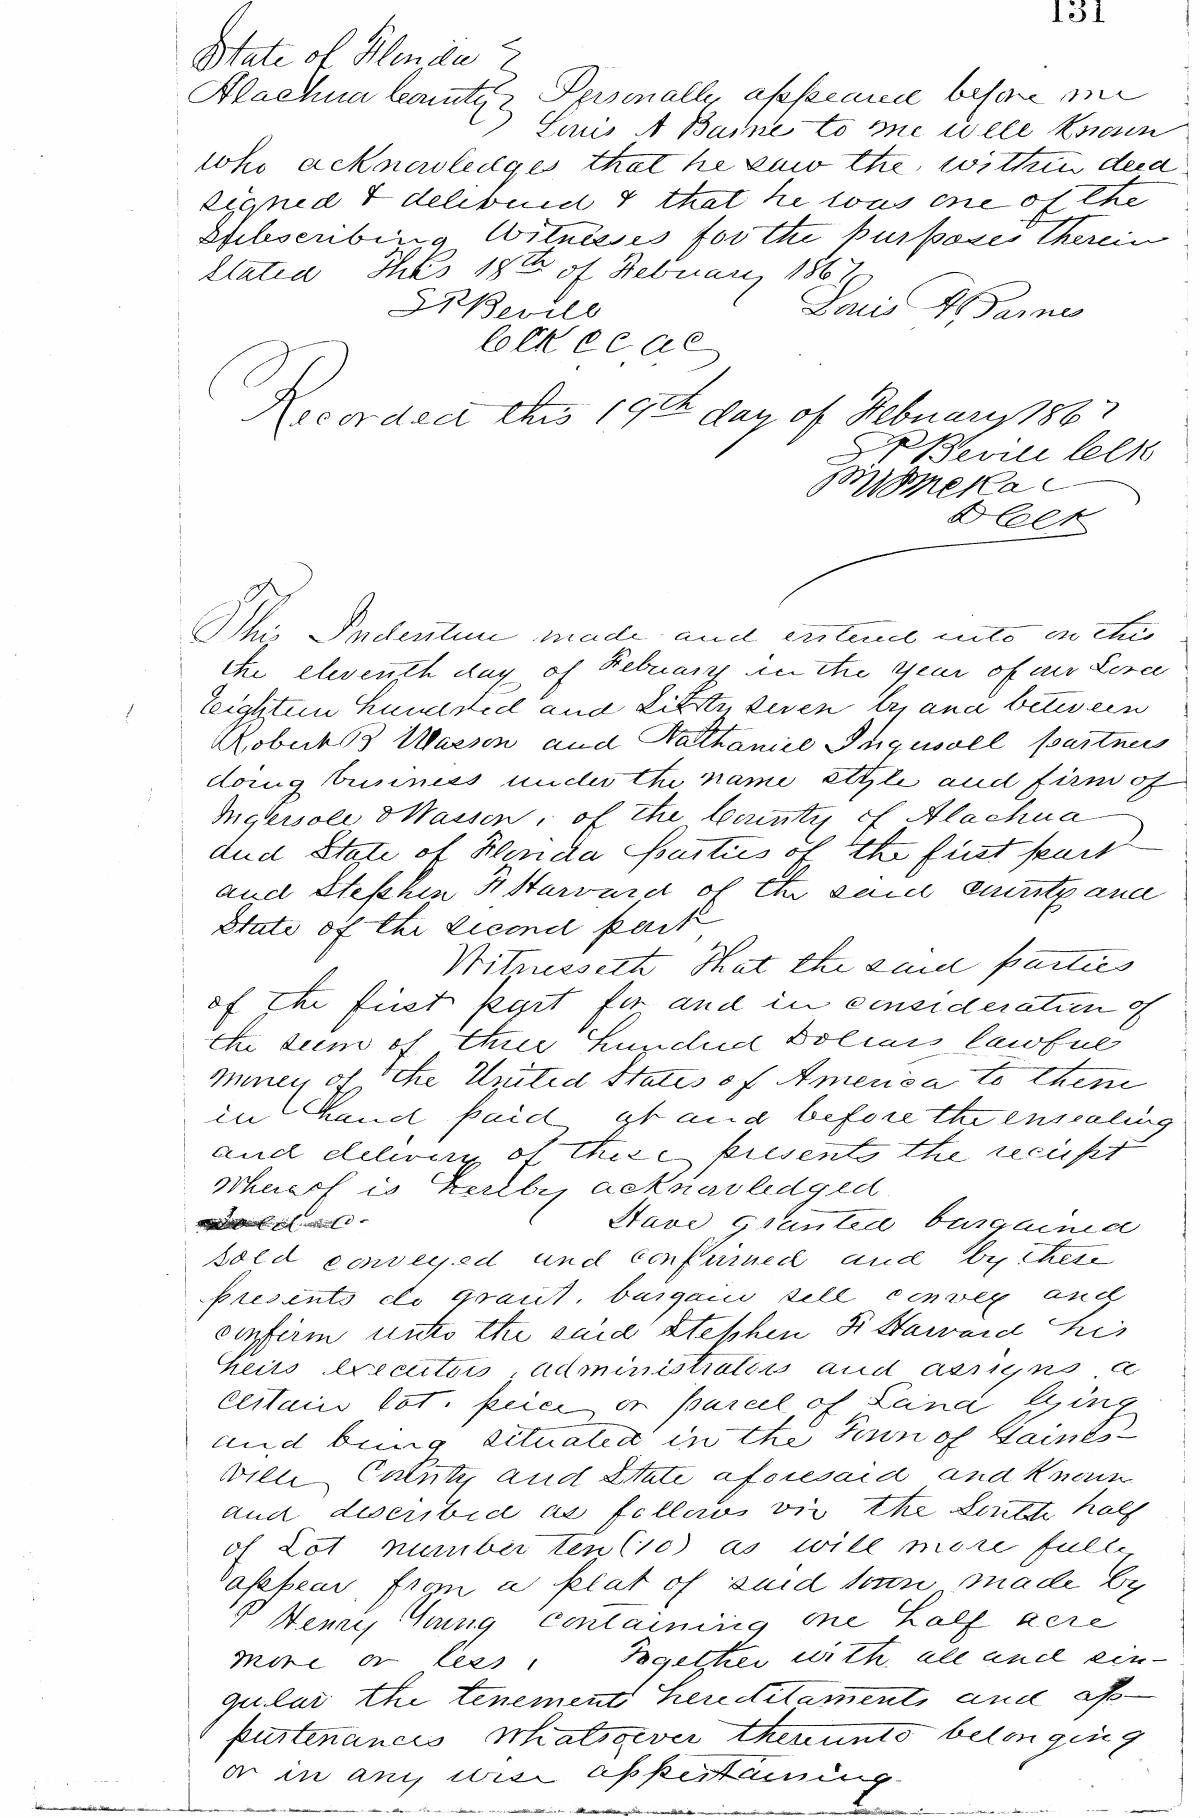 131
State of Florida
Alachua County Personally appeared before me
Louis A Barnes to me well known
who acknowledges that he saw the within deed
signed & delivered & that he was one of the
Subscribing Witnesses for the purposes therein
stated This 18th of February 1867
S P Bevill Louis A. Barnes
Clk C C A C
Recorded this 19th day of February 1867
S P Bevill Clk
D Clk
This Indenture made and entered into on this
the eleventh day of February in the year of our Lord
Eighteen hundred and Sixty seven by and between
Robert B Wasson and Nathaniel Ingersoll partners
doing business under the name style and firm of
Ingersole & Wasson, of the County of Alachua
and State of Florida parties of the first part
and Stephen F Harvard of the said county and
State of the second part,
Witnesseth That the said parties
of the first part for and in consideration of
the sum of three hundred Dollars lawful
money of the United States of America to them
in hand paid at and before the ensealing
and delivery of these presents the reciept
whereof is hereby acknowledged
Have granted bargained
sold conveyed and confirmed and by these
presents do grant, bargain sell convey and
confirm unto the said Stephen F Harvard his
heirs executors, administrators and assigns a
certain lot, peice or parcel of Land lying
and being situated in the Town of Gaines-
ville County and State aforesaid and Known
and described as follows viz the South half
of Lot number ten (10) as will more fully
appear from a plat of said town made by
P Henry Young containing one half acre
more or less, Together with all and sin-
gular the tenements hereditaments and ap-
purtenances whatsoever thereunto belonging
or in any wise appertaining.